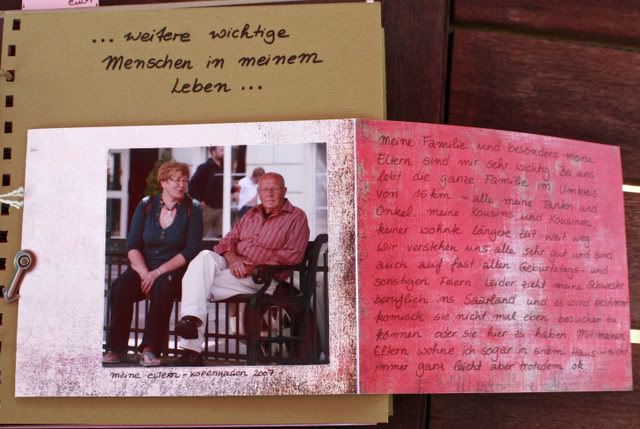 ... weitere wichtige
Menschen in meinem
Leben ...
meine Eltern - Kopenhagen 2007
Meine Familie und besonders meine
Eltern sind mir sehr wichtig. Bei uns
lebt die ganze Familie im Umkreis
von 15 km - alle meine Tanten und
Onkel, meine Kousins und Kousinen,
keiner wohnte längere Zeit weit weg.
Wir verstehen uns alle sehr gut und sind
auch auf fast allen Geburtstags- und
sonstigen Feiern. Leider zieht meine Schwester
beruflich ins Saarland und es wird bestimmt
komisch sie nicht mal eben besuchen zu
können oder sie hier zu haben. Mit meinen
Eltern wohne ich sogar in einem Haus - nicht
immer ganz leicht aber trotzdem ok.